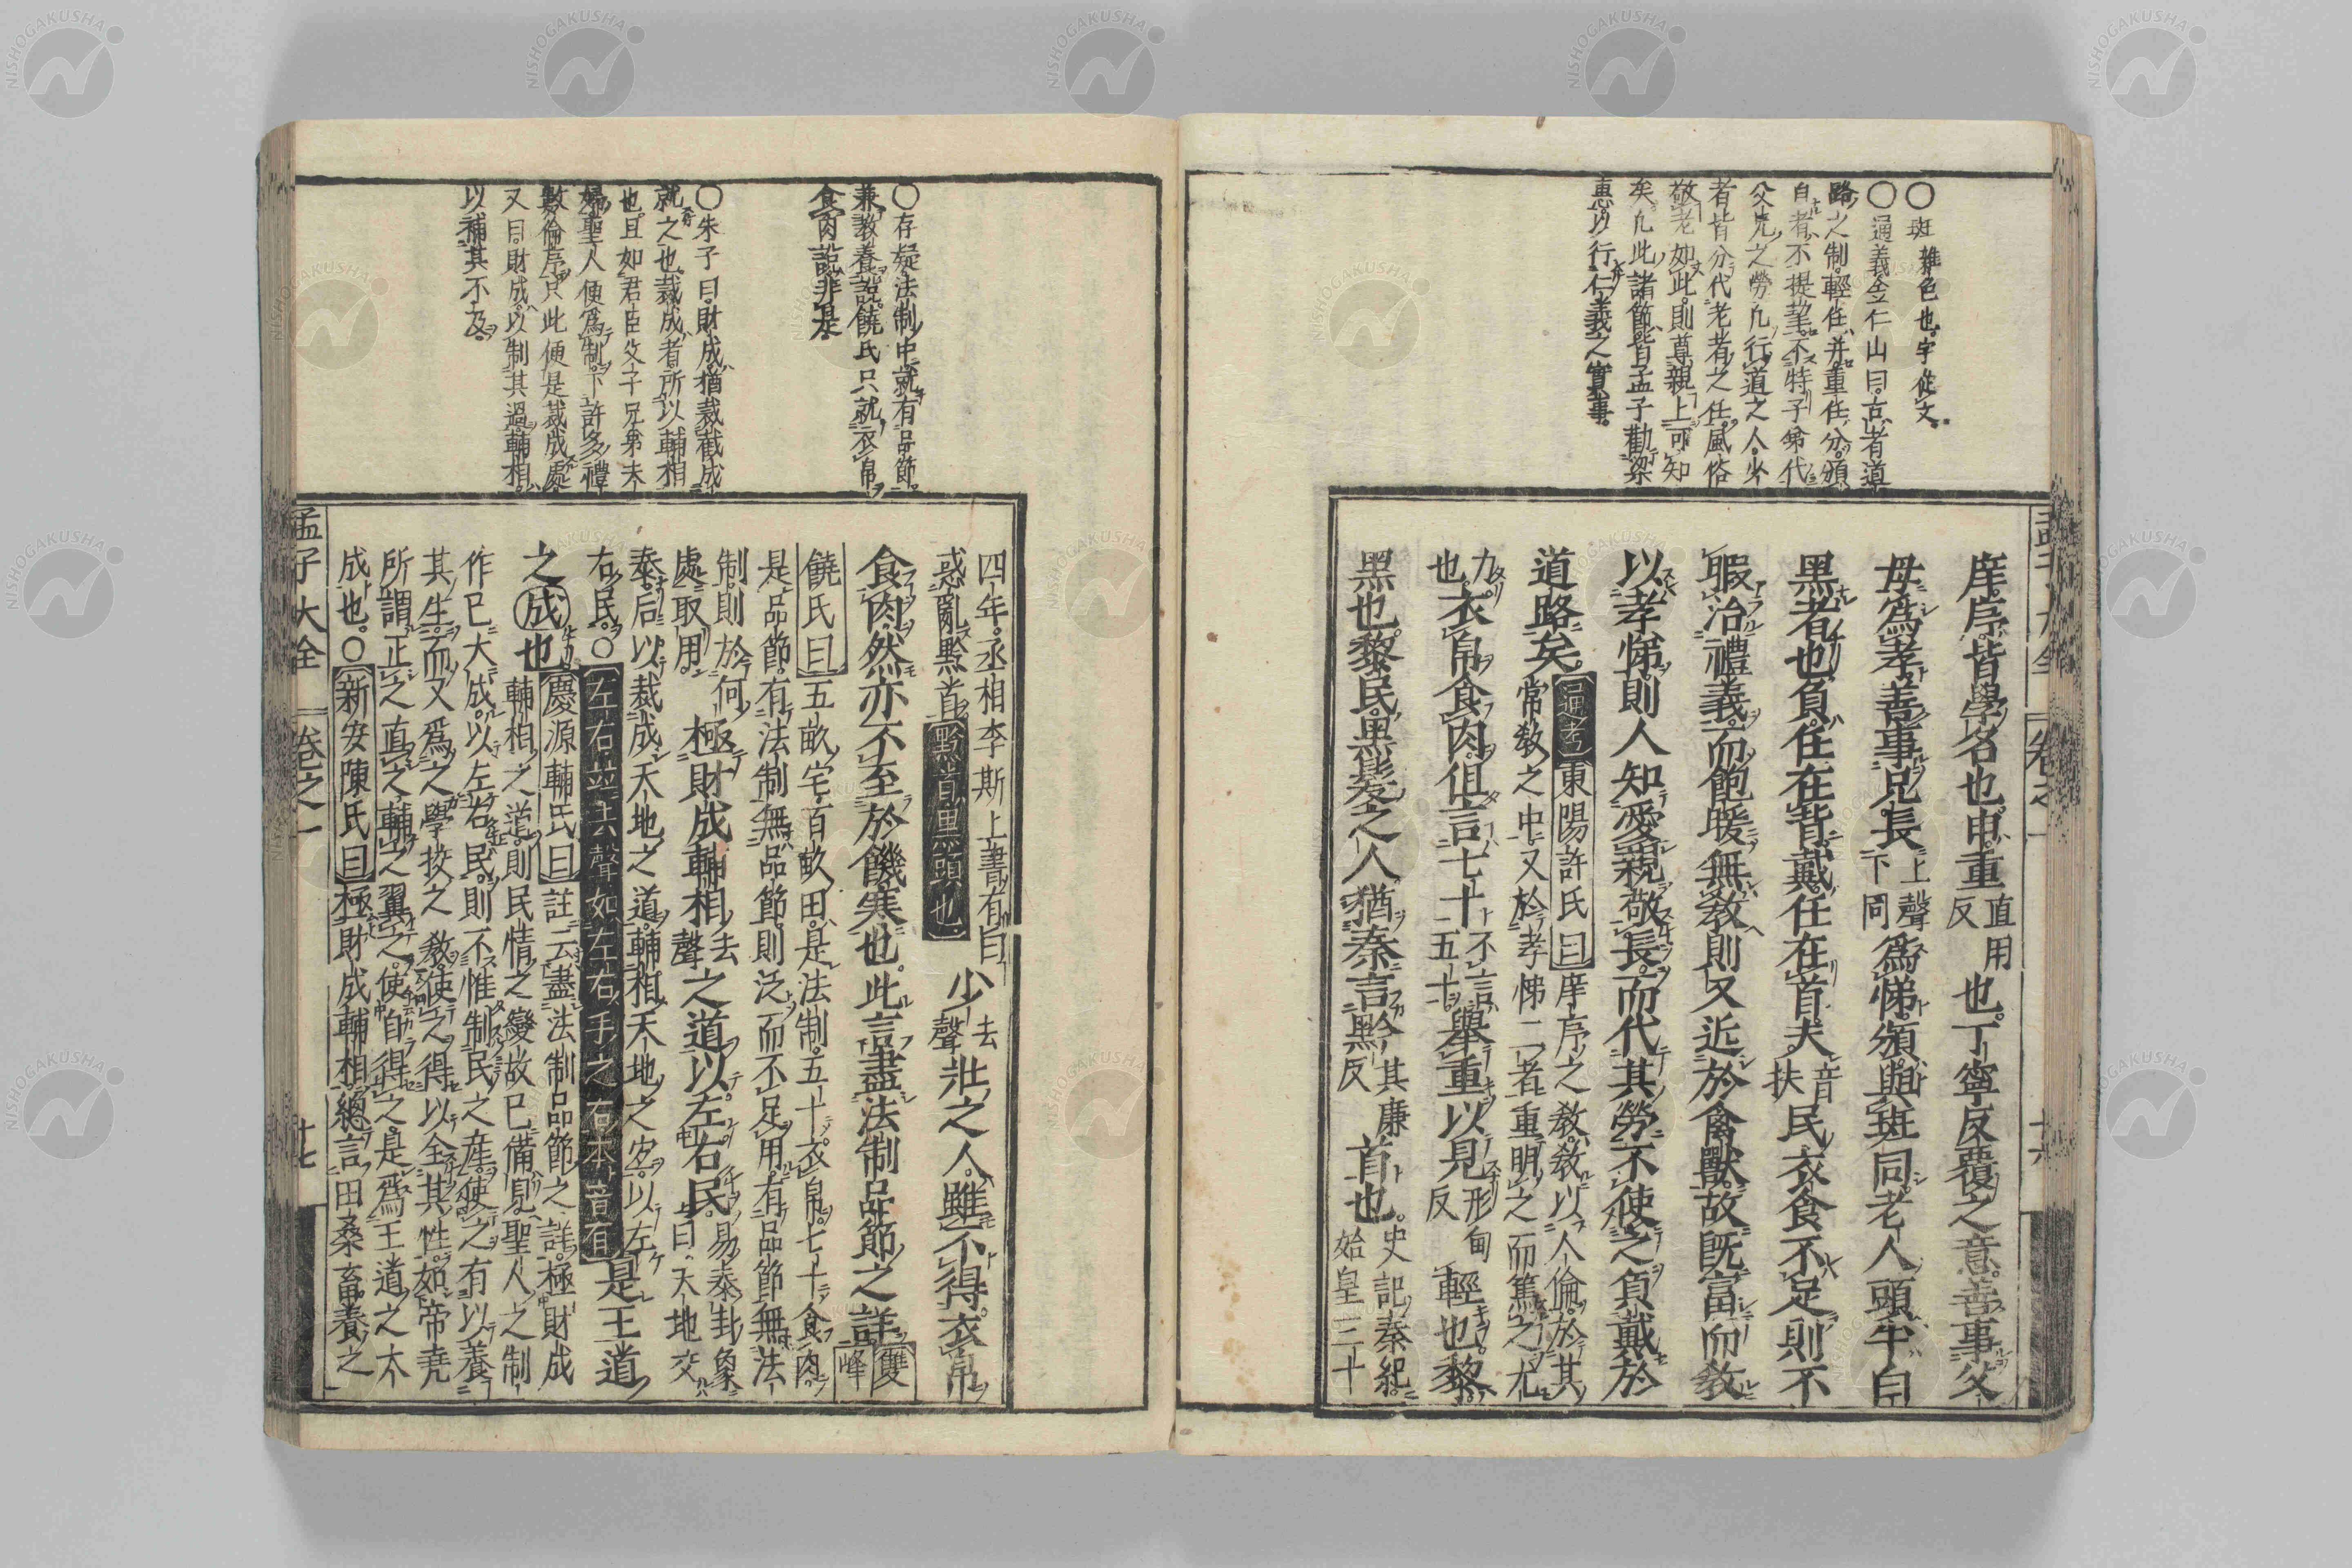 ○班雜色也。字從文。
○通義金仁山曰。古者道
路之制。輕任并。重任分。頒
白者不提挈。不特子弟代
父兄之勞。凡行道之人。少
者皆分代老者之任。風俗
敬老如此。則尊親上可知
矣。凡此諸節。皆孟子勸梁
惠。以行仁義之實事。
庠序。皆學名也。申。重直用反也。丁寧反覆之意。善事父
母爲孝。善事兄長上聲下同爲悌。頒與班同。老人頭半白
黑者也。負。任在背。戴。任在首。夫音扶民衣食不足。則不
暇治禮義。而飽暖無敎。則又近於禽獸。故旣富而敎
以孝悌。則人知愛親敬長。而代其勞。不使之負戴於
道路矣。通考東陽許氏曰庠序之敎。敎以人倫。於其
常敎之中。又於孝悌二者重明之而篤之尤
九也。衣帛食肉。但言七十不言五十。舉重以見形甸反輕也。黎
黑也。黎民。黑髮之人。猶秦言黔其廉反首也。史記秦紀。始皇三十
四年。丞相李斯上書有曰
惑亂黔首黔首黑頭也少去聲壯之人。雖不得衣帛
食肉。然亦不至於饑寒也。此言盡法制品節之詳雙峰
饒氏曰五畝宅。百畝田。是法制。五十衣帛。七十食肉。
是品節。有法制無品節。則泛而不足用。有品節無法
制。則於何處取用。極財成輔相去聲之道。以左右民。易泰卦象曰。天地交
泰。后以裁成天地之道。輔相天地之宜。以左
右民。○左右並去聲如左右手之右本音有是王道
之成也慶源輔氏曰註云盡法制品節之詳。極財成
輔相之道。則民情之變故已備見。聖人之制
作已大成。以左右民。則不惟制民之産。使之有以養
其生。而又爲之學挍之敎。使之得以全其性。如帝堯
所謂正之直之。輔之翼之。使自得之。是爲王道之大
成也。○新安陳氏曰極財成輔相總言田桑畜養之
孟子大全　卷之一　十七
○存疑法制中就有品節。
兼敎養說。饒氏只就衣帛
食肉說非是。
○朱子曰。財成猶裁截成
就之也。裁成者。所以輔相
也。且如君臣父子兄弟夫
婦。聖人便爲制下許多禮
數倫序。只此便是裁成處。
又曰。財成。以制其過。輔相。
以補其不及。